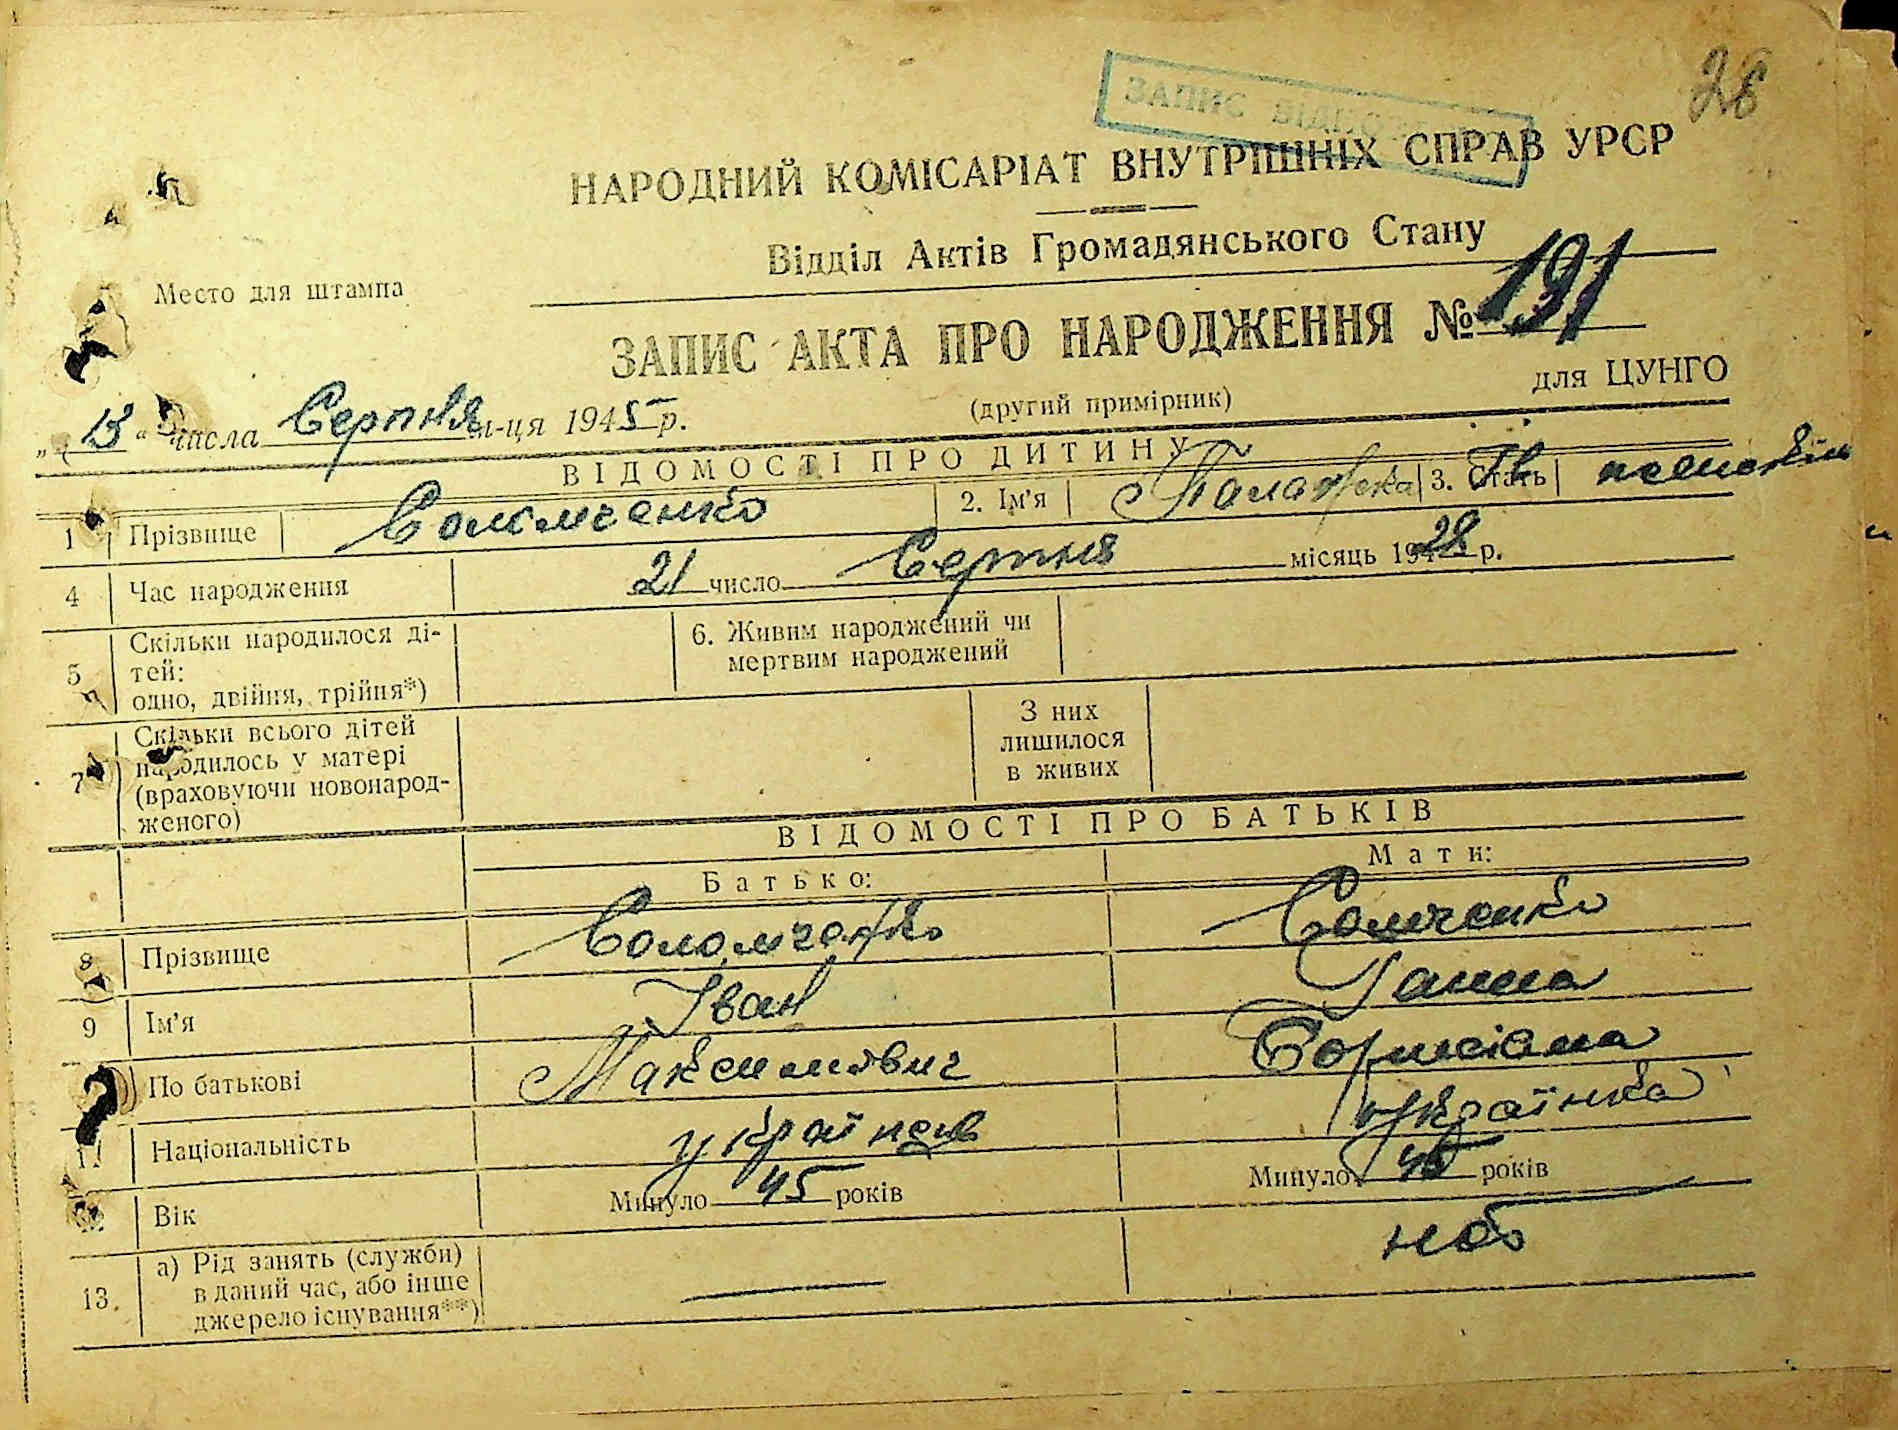 28
ЗАПИС
НАРОДНИЙ КОМІСАРІАТ ВНУТРІШНІХ СПРАВ УРСР
Відділ Актів Громадянського Стану
Место для штампа
ЗАПИС АКТА ПРО НАРОДЖЕННЯ № 191
для ЦУНГО
(другий примірник)
„ 13 “ числа Серпня м-ця 1945 р.
ВІДОМОСТІ ПРО ДИТИНУ
1 Прізвище Соломченко 2. Ім'я Палажка 3. Стать
4 Час народження 21 число Серпня місяць 1928 р.
5 Скільки народилося ді-
тей:
одно, двійня, трійня*)
6. Живим народжений чи
мертвим народжений
7 Скільки всього дітей
народилось у матері
(враховуючи новонарод-
женого)
З них
лишилося
в живих
ВІДОМОСТІ ПРО БАТЬКІВ
Батько: Мати:
8 Прізвище Соломченко Сомченко
9 Ім'я Іван Ганна
По батькові Максимович
11 Національність українец Українка
Вік Минуло 45 років Минуло 45 років
13. а) Рід занять (служби)
в даний час, або інше
джерело існування**)